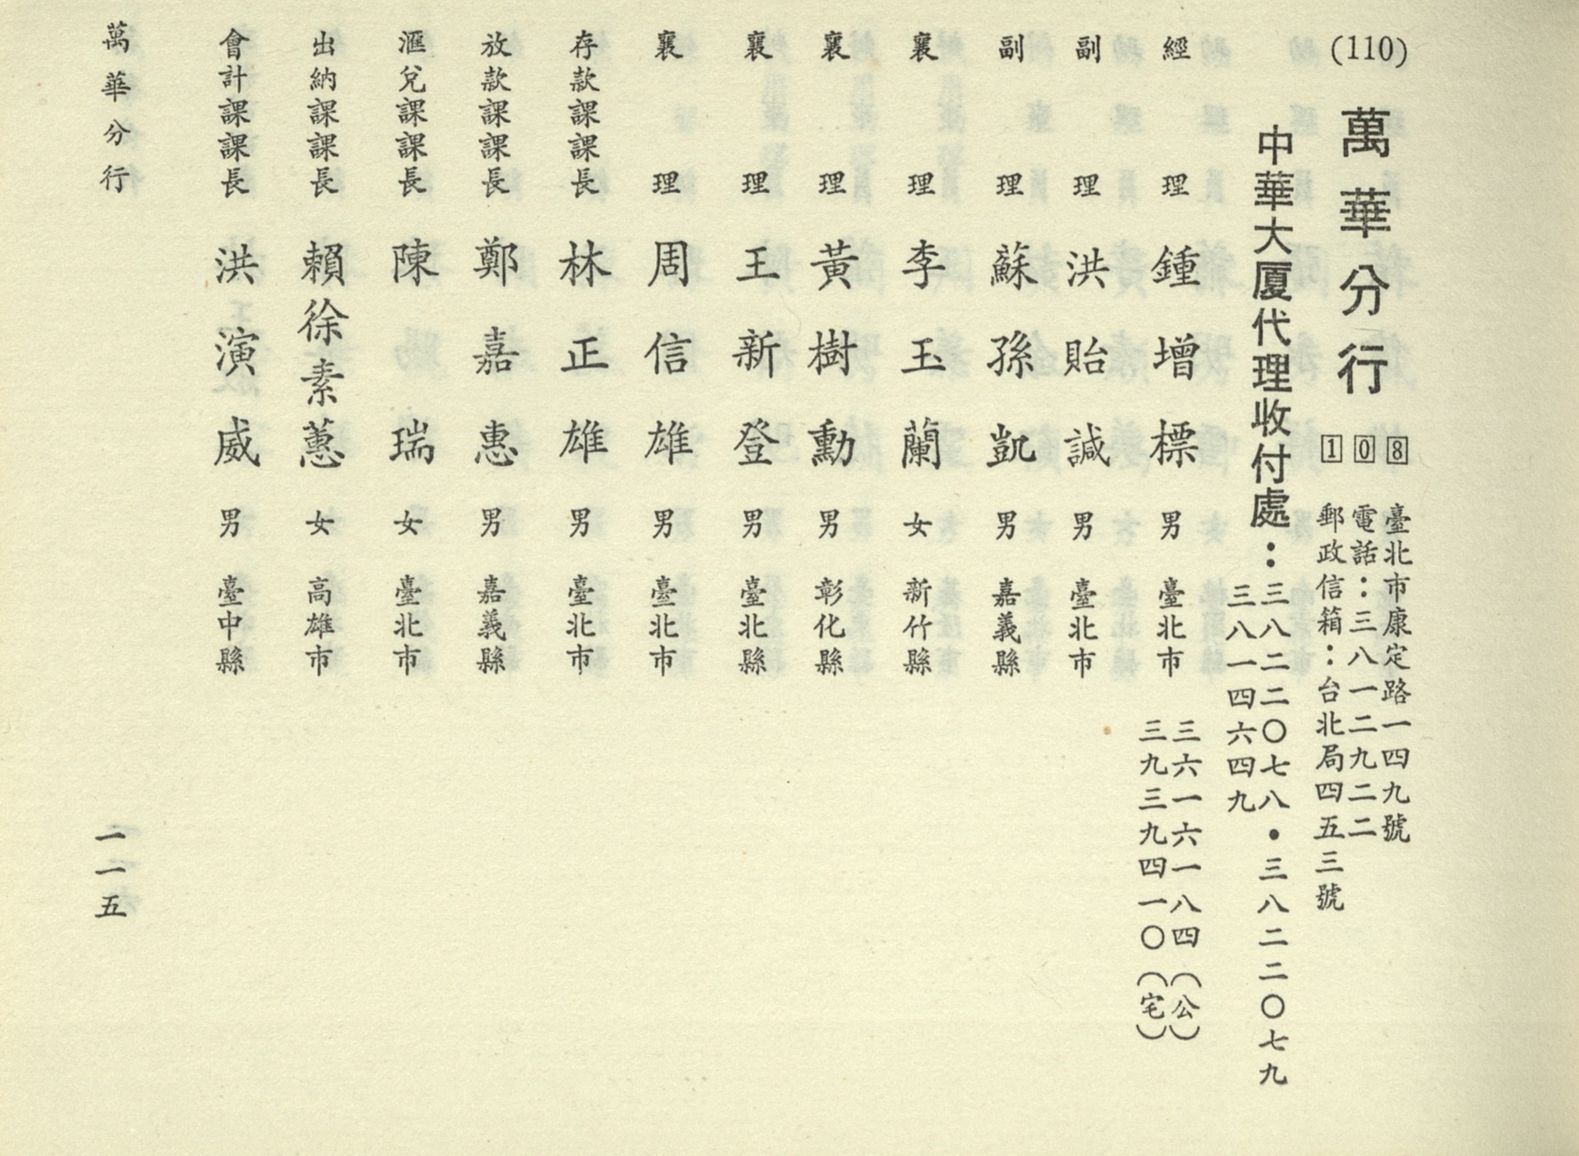 (110)
萬華分行
108
臺北市康定路一四九號
電話：三八一二九二二
郵政信箱：台北局四五三號
中華大厦代理收付處：
三八二二〇七八・三八二二〇七九
三八一四六四九
經理 鍾增標 男 臺北市
三六一六一八四（公）
三九三九四一〇（宅）
副理 洪貽諴 男 臺北市
副理 蘇孫凱 男 嘉義縣
襄理 李玉蘭 女 新竹縣
襄理 黃樹勳 男 彰化縣
襄理 王新登 男 臺北縣
襄理 周信雄 男 臺北市
存款課課長 林正雄 男 臺北市
放款課課長 鄭嘉惠 男 嘉義縣
滙兌課課長 陳瑞 女 臺北市
出納課課長 賴徐素蕙 女 高雄市
會計課課長 洪演威 男 臺中縣
萬華分行
一一五